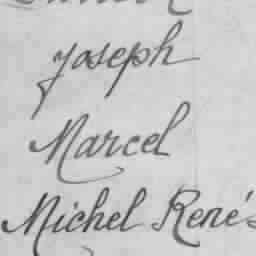 Joseph
Marcel
Michel René